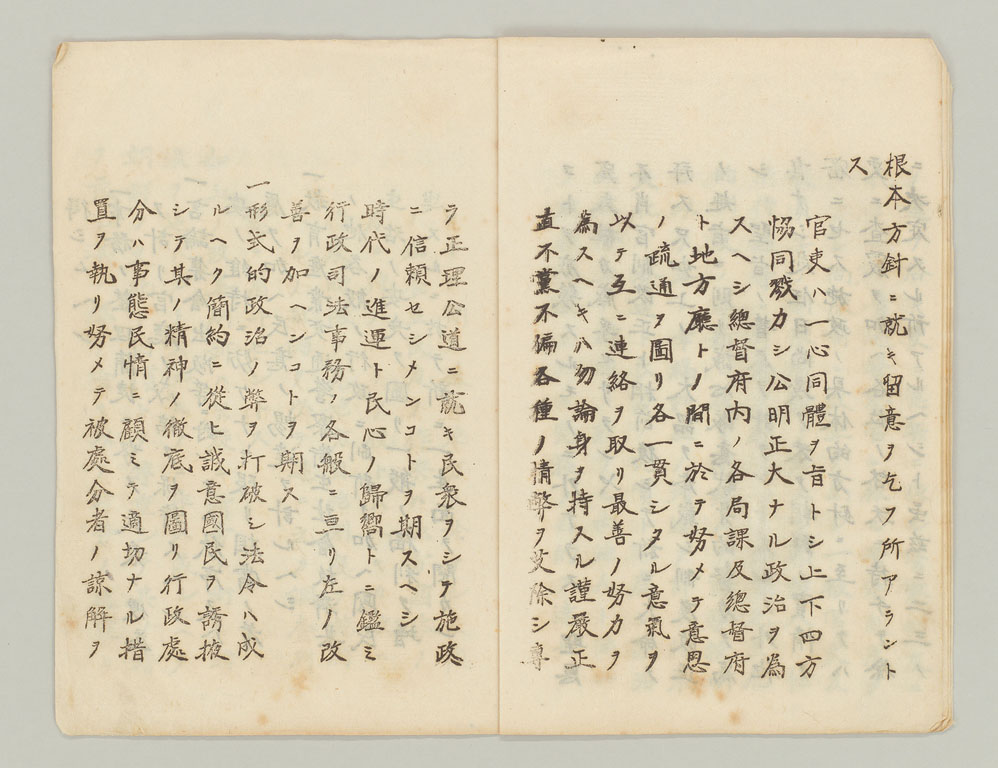 根本方針ニ就キ留意ヲ乞フ所アラント
ス
官吏ハ一心同體ヲ旨トシ上下四方
恊同戮力シ公明正大ナル政治ヲ為
スヘシ總督府内ノ各局課及總督府
ト地方廳トノ間ニ於テ努メテ意思
ノ疏通ヲ圖リ各一貫シタル意氣ヲ
以テ互ニ連絡ヲ取リ最善ノ努力ヲ
為スヘキハ勿論身ヲ持スル謹嚴正
直不黨不偏各種ノ情弊ヲ芟除シ專
ラ正理公道ニ就キ民衆ヲシテ施政
ニ信頼セシメンコトヲ期スヘシ
時代ノ進運ト民心ノ歸嚮トニ鑑ミ
行政司法事務ノ各般ニ亘リ左ノ改
善ヲ加ヘンコトヲ期ス
一形式的政治ノ弊ヲ打破シ法令ハ成
ルヘク簡約ニ從ヒ誠意國民ヲ誘掖
シテ其ノ精神ノ徹底ヲ圖リ行政處
分ハ事態民情ニ顧ミテ適切ナル措
置ヲ執リ努メテ被處分者ノ諒解ヲ